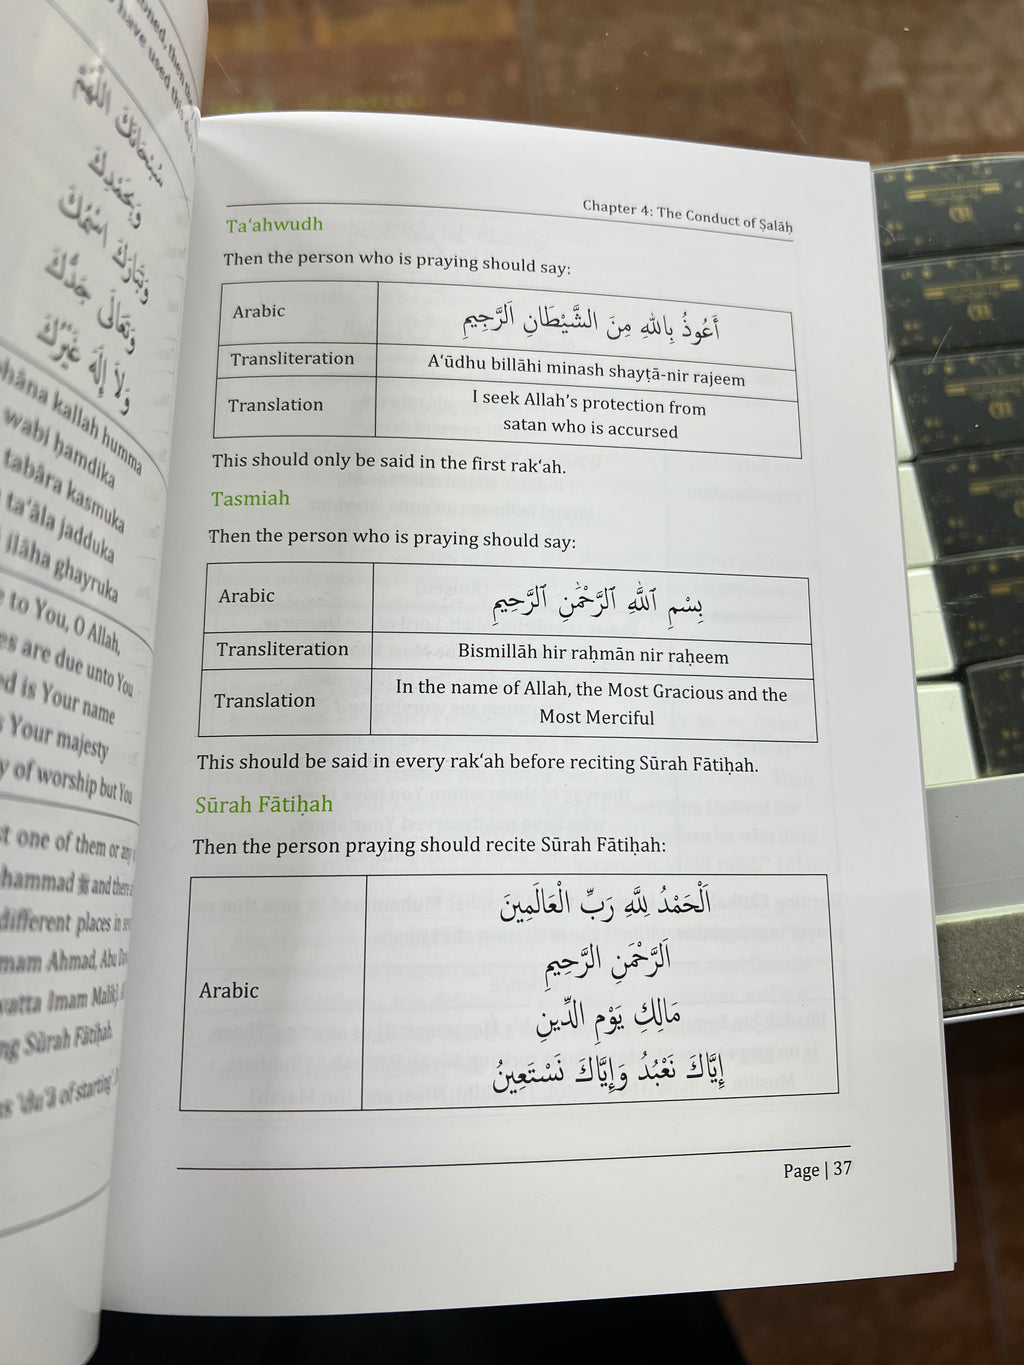 سُبْحَانَكَ اللَّهُمَّ
وَبِحَمْدِكَ
وَتَبَارَكَ اسْمُكَ
وَتَعَالَى جَدُّكَ
وَلَا إِلَهَ غَيْرُكَ
kallah humma
wabi ḥamdika
tabāra kasmuka
ta'āla jadduka
ilāha ghayruka
to You, O Allah,
are due unto You
is Your name
Your majesty
of worship but You
one of them or any
and there
different places in
Imam Ahmad, Abu
Imam Malik
Sūrah Fātiḥah.
of starting
Chapter 4: The Conduct of Ṣalāḥ
Ta‘ahwudh
Then the person who is praying should say:
Arabic
أَعُوذُ بِاللهِ مِنَ الشَّيْطَانِ اَلرَّجِيمِ
Transliteration
A‘ūdhu billāhi minash shayṭā-nir rajeem
Translation
I seek Allah’s protection from
satan who is accursed
This should only be said in the first rak‘ah.
Tasmiah
Then the person who is praying should say:
Arabic
بِسْمِ ٱللَّهِ ٱلرَّحْمَٰنِ ٱلرَّحِيمِ
Transliteration
Bismillāh hir raḥmān nir raḥeem
Translation
In the name of Allah, the Most Gracious and the
Most Merciful
This should be said in every rak‘ah before reciting Sūrah Fātiḥah.
Sūrah Fātiḥah
Then the person praying should recite Sūrah Fātiḥah:
Arabic
اَلْحَمْدُ لِلَّهِ رَبِّ الْعَالَمِينَ
اَلرَّحْمَنِ الرَّحِيمِ
مَالِكِ يَوْمِ الدِّينِ
إِيَّاكَ نَعْبُدُ وَإِيَّاكَ نَسْتَعِينُ
Page | 37